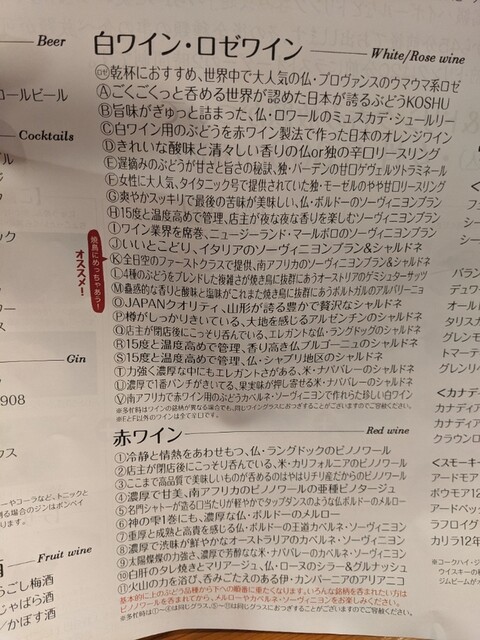 Beer
コールビール
Cocktails
ック
Gin
908
クス
ーやコーラなど、トニックと
する場合のジンはボンベイ
ります。
Fruit wine
ごし梅酒
ンやばら酒
/かぼす酒
白ワイン・ロゼワイン
White/Rose wine
ロゼ 乾杯におすすめ、世界中で大人気の仏・プロヴァンスのウマウマ系ロゼ
Ⓐごくごくっと呑める世界が認めた日本が誇るぶどうKOSHU
Ⓑ旨味がぎゅっと詰まった、仏・ロワールのミュスカデ・シュールリー
Ⓒ白ワイン用のぶどうを赤ワイン製法で作った日本のオレンジワイン
Ⓓきれいな酸味と清々しい香りの仏or独の辛口リースリング
Ⓔ遅摘みのぶどうが甘さと旨さの秘訣、独・バーデンの甘口ゲヴェルツトラミネール
Ⓕ女性に大人気、タイタニック号で提供されていた独・モーゼルのやや甘口リースリング
Ⓖ爽やかスッキリで最後の苦味が美味しい、仏・ボルドーのソーヴィニヨンブラン
Ⓗ15度と温度高めで管理、店主が夜な夜な香りを楽しむソーヴィニヨンブラン
Ⓘワイン業界を席巻、ニュージーランド・マールボロのソーヴィニヨンブラン
Ⓙいいとこどり、イタリアのソーヴィニヨンブラン&シャルドネ
Ⓚ全日空のファーストクラスで提供、南アフリカのソーヴィニヨンブラン&シャルドネ
Ⓛ4種のぶどうをブレンドした複雑さが焼き鳥に抜群にあうオーストリアのゲミシュターサッツ
Ⓜ蠱惑的な香りと酸味と塩味がこれまた焼き鳥に抜群にあうポルトガルのアルバリーニョ
焼鳥にめっちゃあう!
オススメ!
ⓄJAPANクオリティ、山形が誇る豊かで贅沢なシャルドネ
Ⓟ樽がしっかりきいている、大地を感じるアルゼンチンのシャルドネ
Ⓠ店主が閉店後にこっそり呑んでいる、エレガントな仏・ラングドッグのシャルドネ
Ⓡ15度と温度高めで管理、香り高き仏ブルゴーニュのシャルドネ
Ⓢ15度と温度高めで管理、仏・シャブリ地区のシャルドネ
Ⓣ力強く濃厚な中にもエレガントさがある、米・ナパバレーのシャルドネ
Ⓤ濃厚で1番パンチがきいてる、果実味が押し寄せる米・ナパバレーのシャルドネ
Ⓥ南アフリカで赤ワイン用のぶどうカベルネ・ソーヴィニヨンで作られた珍しい白ワイン
※多忙時はワインの銘柄が異なる場合でも、同じワイングラスにおつぎすることがございますのでご容赦ください。
※EとF以外のワインは全て辛口です。
赤ワイン
Red wine
①冷静と情熱をあわせもつ、仏・ラングドックのピノノワール
②店主が閉店後にこっそり呑んでいる、米・カリフォルニアのピノノワール
③ここまで高品質で美味しいものが呑めるのはやはりチリ産だからのピノノワール
④濃厚で甘美、南アフリカのピノノワールの亜種ピノタージュ
⑤名門シャトーが造る口当たりが軽やかでタップダンスのような仏ボルドーのメルロー
⑥神の雫1巻にも、濃厚な仏・ボルドーのメルロー
⑦重厚と成熟と高貴を感じる仏・ボルドーの王道カベルネ・ソーヴィニヨン
⑧濃厚で渋味が鮮やかなオーストラリアのカベルネ・ソーヴィニヨン
⑨太陽燦燦の力強さ、濃厚で芳醇なな米・ナパバレーのカベルネ・ソーヴィニヨン
⑩白肝のタレ焼きとマリアージュ、仏・ローヌのシラー&グルナッシュ
⑪火山の力を浴び、呑みごたえのある伊・カンパーニアのアリアニコ
基本的に上のぶどう品種から下への順番に重たくなります。いろんな銘柄を呑まれたい方は
ピノノワールを呑まれてから、メルローやカベルネ・ソーヴィニヨンをお楽しみください。
シーバ
バラン
デュワ
オール
タリスカ
グレンモ
トマーテ
グレンリ
<カナディ
カナディア
カナディア
クラウンロ
<スモーキー
アードモア
ボウモア12
アードベッ
ラフロイグ
カリラ12年
※コークハイ・ジ
ウイスキーの
ジムビームが